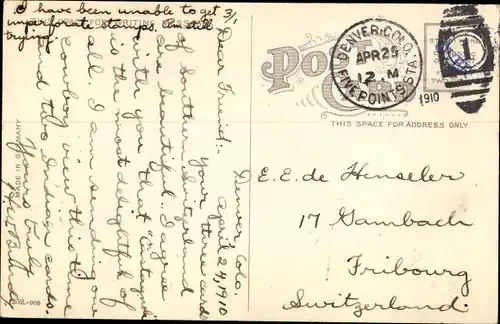 I have been unable to get
imperforate stamps. Am still
trying.
3/1.
Denver, Colo.
April 24, 1910
Dear Friend:- Your three cards
of Southern Switzerland
are beautiful. I agree
with you that
is the most delightful of
all. I am sending one
cowboy view this time
and two Indian cards.
Yours truly
MADE IN GERMANY
POST CARD
THIS SPACE FOR ADDRESS ONLY
DENVER, COLO.
APR 25
12 M
1910
FIVE POINTS STA.
1
E.E. de Henseler
17 Gambach
Fribourg
Switzerland.